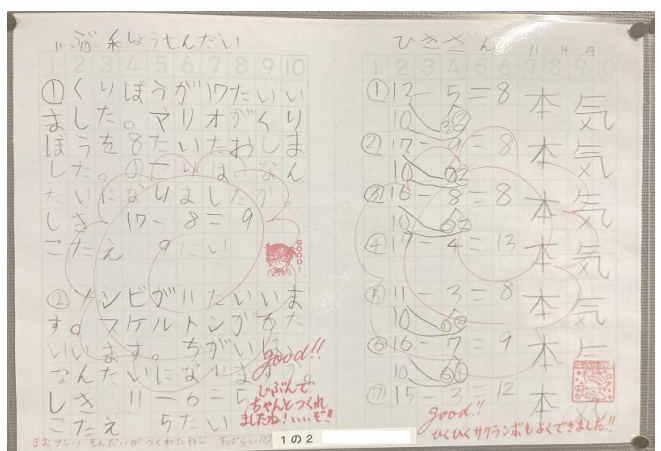 しょうもんだい
1 2 3 4 5 6 7 8 9 10
①くりぼうが17たいい
ました。マリオがくり
ぼうを8たいたおしま
した。のこりはなん
たいになりましたか
しき 17-8=9
こたえ 9たい
GOOD!
②ゾンビが11たいいま
す。スケルトンが6た
いいます。ちがいは
なんたいになりますか。
しき 11-6=5
こたえ 5たい
good!!
じぶんで
ちゃんとつくれ
ましたね!いいぞ!!
1の2
ひきざん
1 2 3 4 5 6 7 8 9 10
①13-5=8
10 3 2
②17-9=8
10
③16-8=8
10
④17-4=13
⑤11-3=8
10
⑥16-7=9
10 6
⑦15-3=12
本気
本気
本気
本気
本気
本
本気
good!!
ひくひくサクランボもよくできました!!